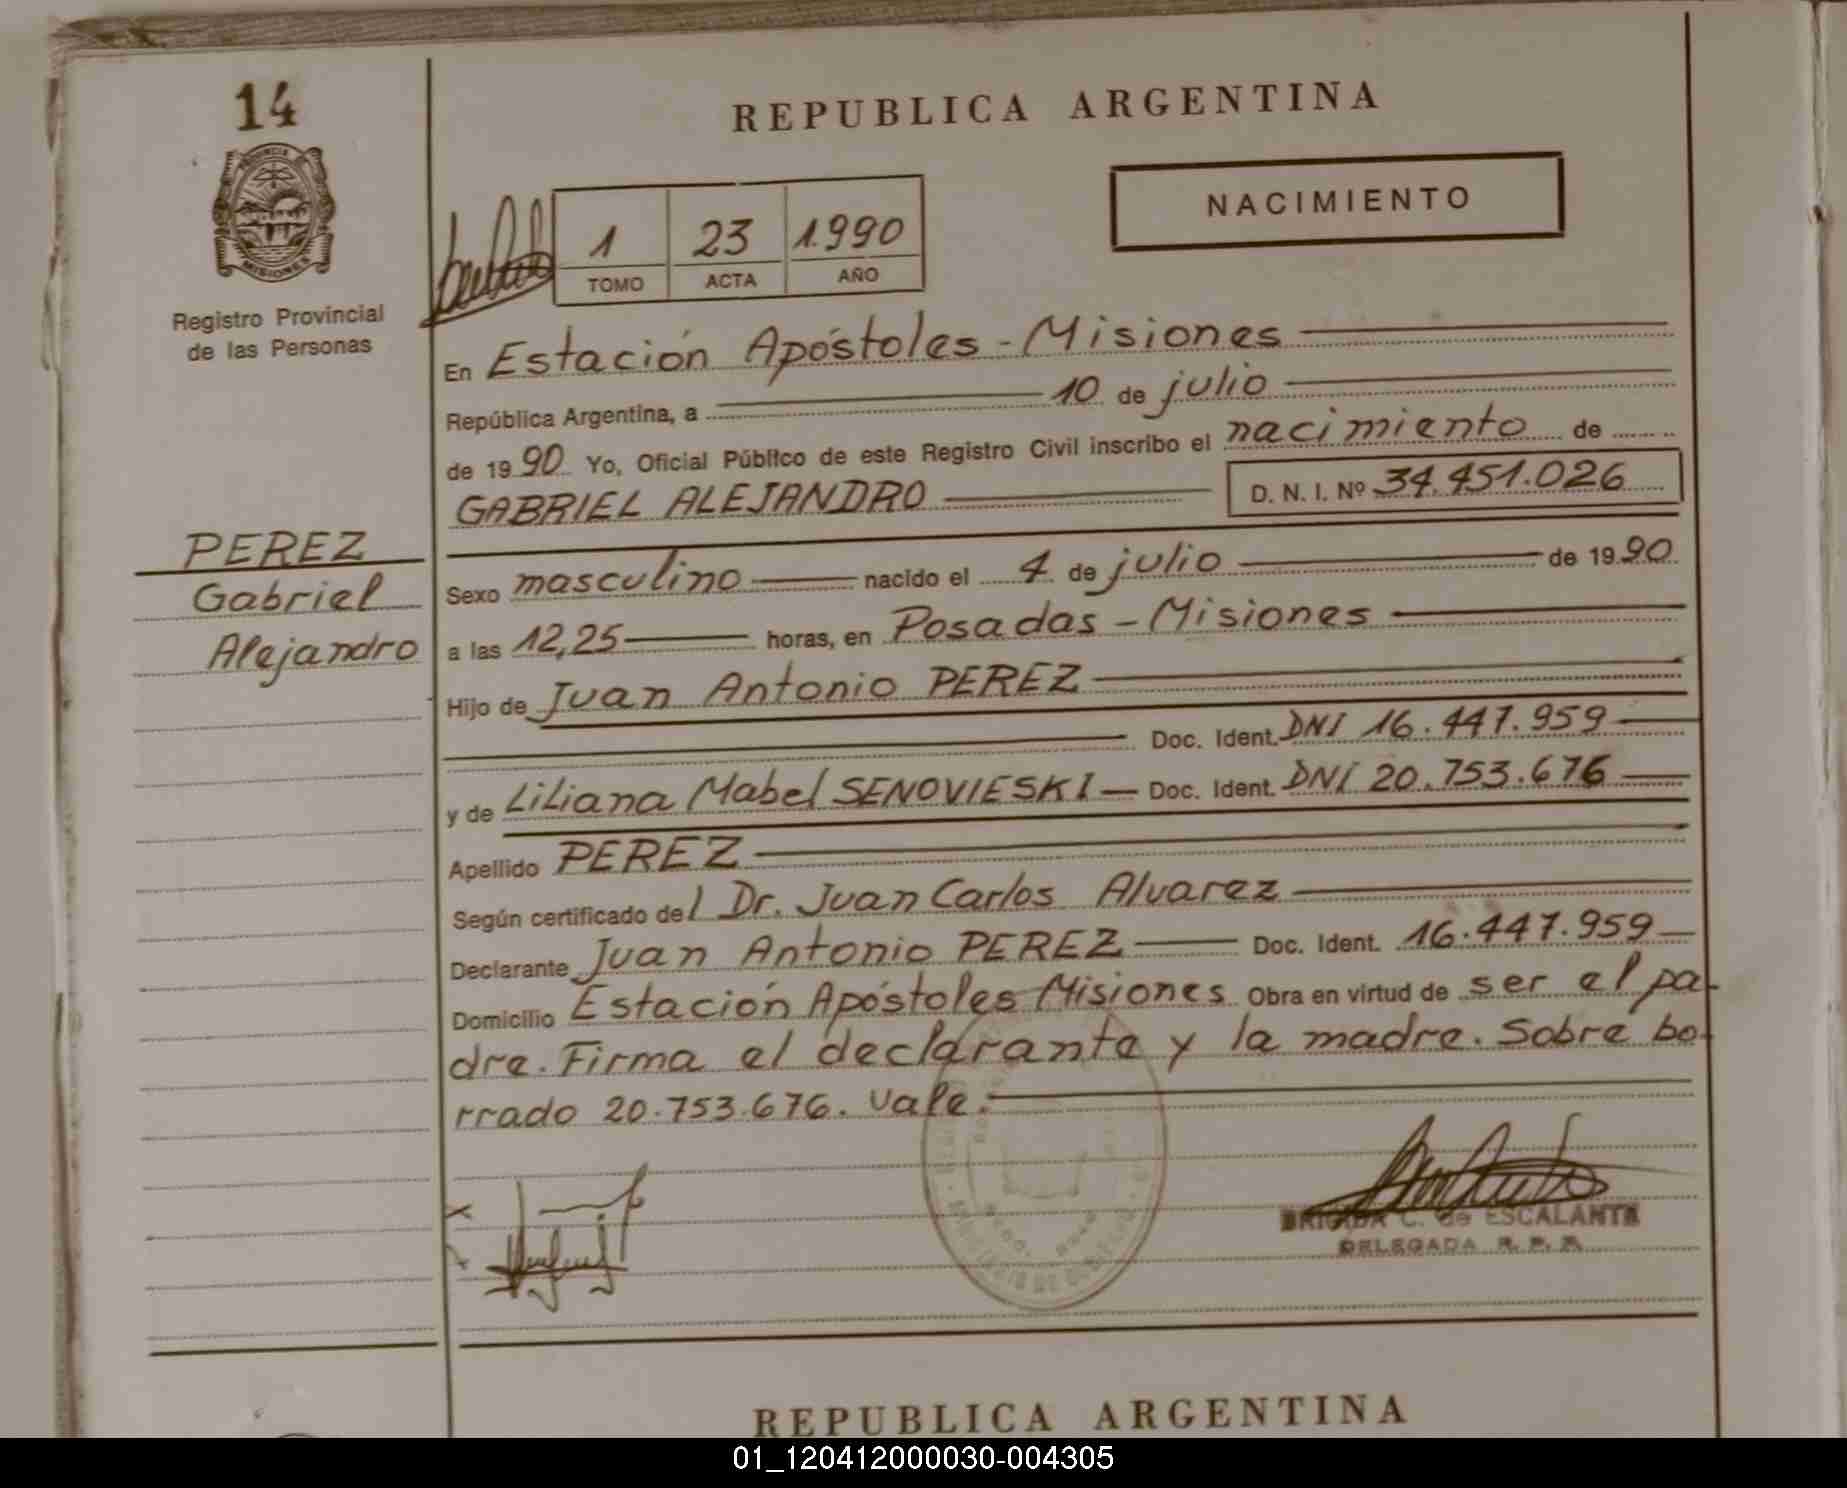 14
PROVINCIA DE
MISIONES
Registro Provincial
de las Personas
REPUBLICA ARGENTINA
NACIMIENTO
1 23 1.990
TOMO ACTA AÑO
En Estación Apóstoles - Misiones
República Argentina, a 10 de julio
de 1990 Yo, Oficial Público de este Registro Civil inscribo el nacimiento de
GABRIEL ALEJANDRO D. N. I. Nº 34.451.026
PEREZ
Gabriel
Alejandro
Sexo masculino nacido el 4 de julio de 1990
a las 12,25 horas, en Posadas - Misiones
Hijo de Juan Antonio PEREZ
Doc. Ident. DNI 16.447.959
y de Liliana Mabel SENOVIESKI Doc. Ident. DNI 20.753.676
Apellido PEREZ
Según certificado del Dr. Juan Carlos Alvarez
Declarante Juan Antonio PEREZ Doc. Ident. 16.447.959
Domicilio Estación Apóstoles Misiones Obra en virtud de ser el pa-
dre. Firma el declarante y la madre. Sobre bo-
rrado 20.753.676. Vale.
BRIGIDA C. de ESCALANTE
DELEGADA R. P. P.
REPUBLICA ARGENTINA
01_120412000030-004305